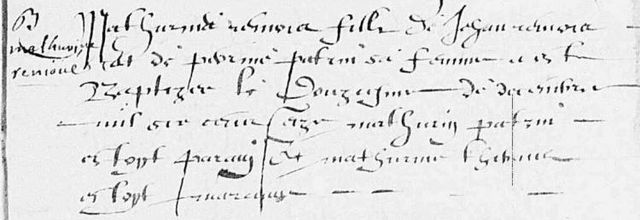 63
mathurine
renioul
Mathurine renioul fille de Jehan renioul
et de perrine patrin sa femme a este
Baptizee le Douziesme de decembre
mil six cens seze mathurin patrin
estoyt parain et mathurine
estoyt maraine